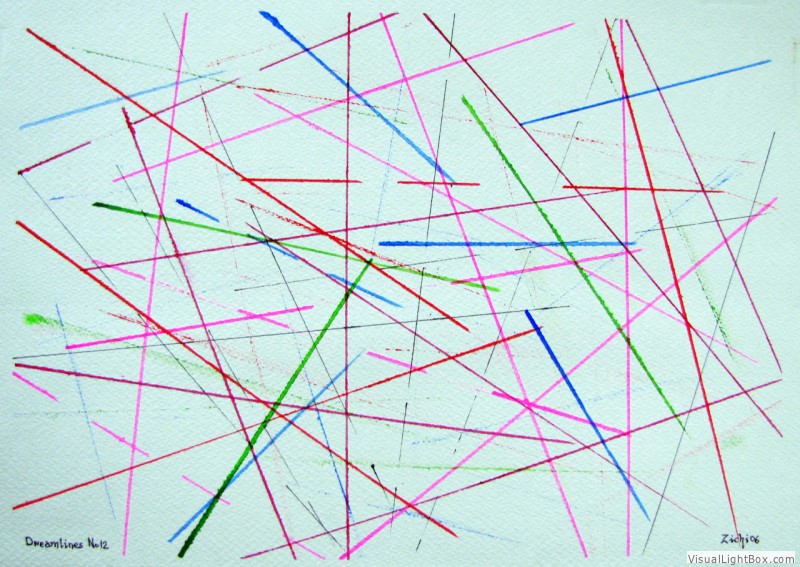 Dreamlines No12
Zichi06
VisualLightBox.com